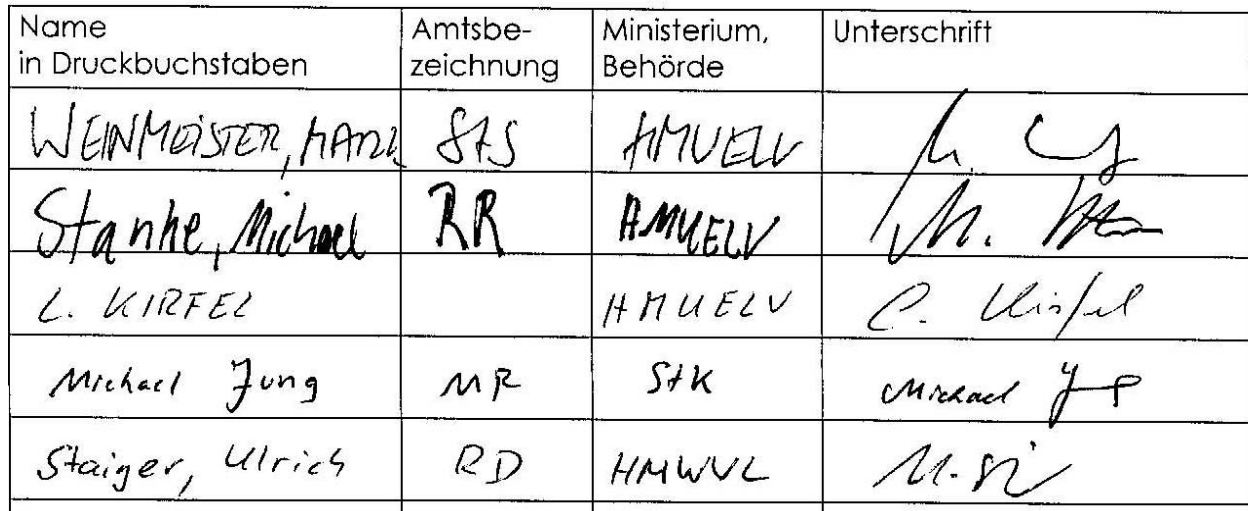 Name in Druckbuchstaben Amtsbe-zeichnung Ministerium, Behörde Unterschrift
WEINMEISTER, MARK StS HMUELV
Stanke, Michael RR HMUELV M.
L. KIRFEL HMUELV C. Kirfel
Michael Jung MR StK Michael
Staiger, Ulrich RD HMWVL